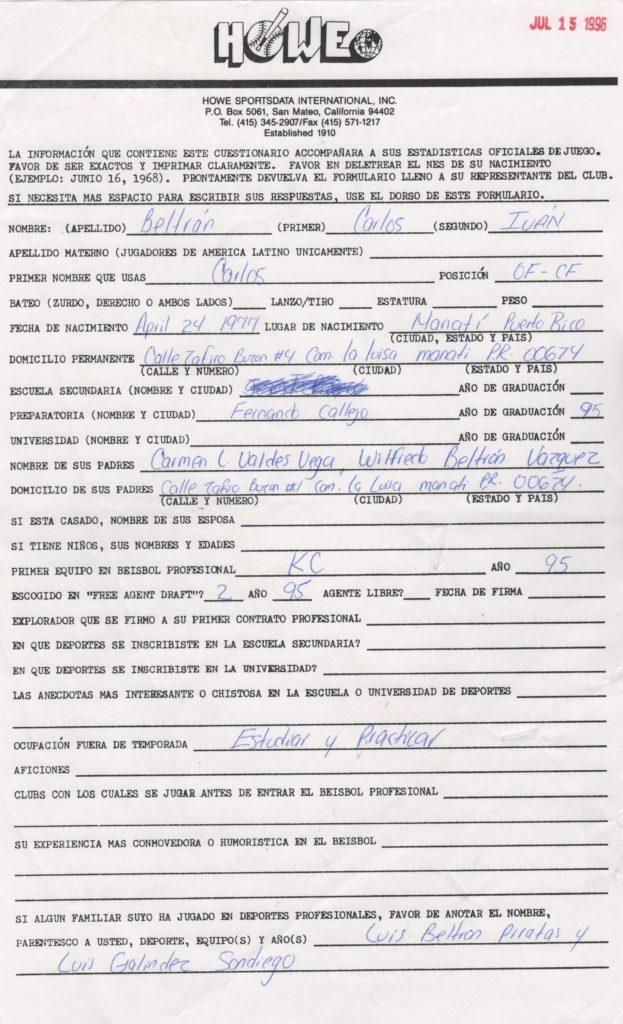 JUL 15 1996
HOWE
HOWE SPORTSDATA INTERNATIONAL, INC.
P.O. Box 5061, San Mateo, California 94402
Tel. (415) 345-2907/Fax (415) 571-1217
Established 1910
LA INFORMACIÓN QUE CONTIENE ESTE CUESTIONARIO ACCOMPAÑARA A SUS ESTADISTICAS OFICIALES DE JUEGO.
FAVOR DE SER EXACTOS Y IMPRIMAR CLARAMENTE. FAVOR EN DELETREAR EL NES DE SU NACIMIENTO
(EJEMPLO: JUNIO 16, 1968). PRONTAMENTE DEVUELVA EL FORMULARIO LLENO A SU REPRESENTANTE DEL CLUB.
SI NECESITA MAS ESPACIO PARA ESCRIBIR SUS RESPUESTAS, USE EL DORSO DE ESTE FORMULARIO.
NOMBRE: (APELLIDO) Beltrán (PRIMER) Carlos (SEGUNDO) IVÁN
APELLIDO MATERNO (JUGADORES DE AMERICA LATINO UNICAMENTE)
PRIMER NOMBRE QUE USAS Carlos POSICIÓN OF-CF
BATEO (ZURDO, DERECHO O AMBOS LADOS) LANZO/TIRO ESTATURA PESO
FECHA DE NACIMIENTO April 24 1977 LUGAR DE NACIMIENTO Manatí Puerto Rico
(CIUDAD, ESTADO Y PAIS)
DOMICILIO PERMANENTE Calle Zafiro Buzon #4 Com. la luisa manati P.R. 00674
(CALLE Y NUMERO) (CIUDAD) (ESTADO Y PAIS)
ESCUELA SECUNDARIA (NOMBRE Y CIUDAD) AÑO DE GRADUACIÓN
PREPARATORIA (NOMBRE Y CIUDAD) Fernando Callejo AÑO DE GRADUACIÓN 95
UNIVERSIDAD (NOMBRE Y CIUDAD) AÑO DE GRADUACIÓN
NOMBRE DE SUS PADRES Carmen L. Valdes Vega, Wilfredo Beltrón Vazquez
DOMICILIO DE SUS PADRES Calle Zafiro Buzon #1 Com. la Luisa manati P.R. 00674.
(CALLE Y NUMERO) (CIUDAD) (ESTADO Y PAIS)
SI ESTA CASADO, NOMBRE DE SUS ESPOSA
SI TIENE NIÑOS, SUS NOMBRES Y EDADES
PRIMER EQUIPO EN BEISBOL PROFESIONAL KC AÑO 95
ESCOGIDO EN "FREE AGENT DRAFT"? 2 AÑO 95 AGENTE LIBRE? FECHA DE FIRMA
EXPLORADOR QUE SE FIRMO A SU PRIMER CONTRATO PROFESIONAL
EN QUE DEPORTES SE INSCRIBISTE EN LA ESCUELA SECUNDARIA?
EN QUE DEPORTES SE INSCRIBISTE EN LA UNIVERSIDAD?
LAS ANECDOTAS MAS INTERESANTE O CHISTOSA EN LA ESCUELA O UNIVERSIDAD DE DEPORTES
OCUPACIÓN FUERA DE TEMPORADA Estudiar y Practicar
AFICIONES
CLUBS CON LOS CUALES SE JUGAR ANTES DE ENTRAR EL BEISBOL PROFESIONAL
SU EXPERIENCIA MAS CONMOVEDORA O HUMORISTICA EN EL BEISBOL
SI ALGUN FAMILIAR SUYO HA JUGADO EN DEPORTES PROFESIONALES, FAVOR DE ANOTAR EL NOMBRE,
PARENTESCO A USTED, DEPORTE, EQUIPO(S) Y AÑO(S) Luis Beltrón Piratas y
Luis Galindez Sandiego